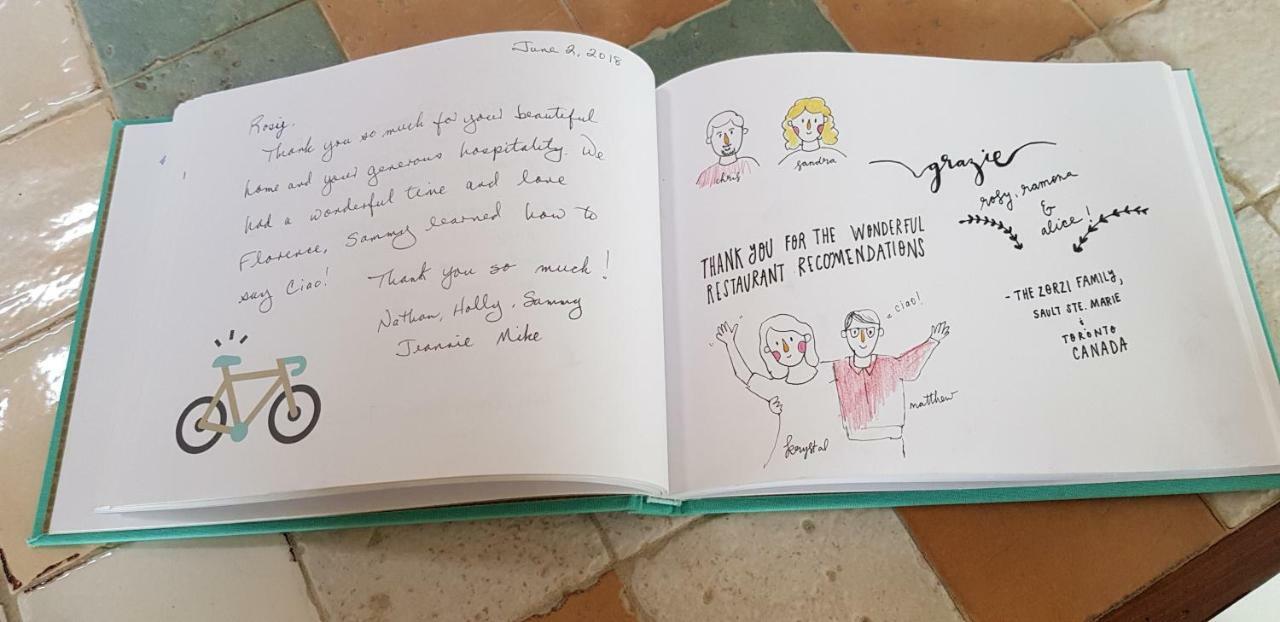 June 2, 2018
Rosy.
Thank you so much for your beautiful
home and your generous hospitality. We
had a wonderful time and love
Florence, Sammy learned how to
say Ciao!
Thank you so much!
Nathan, Holly, Sammy
Jeannie Mike
chris
sandra
grazie
rosy, ramona
&
alice!
THANK YOU FOR THE WONDERFUL
RESTAURANT RECOMENDATIONS
- THE ZORZI FAMILY,
SAULT STE. MARIE
&
TORONTO
CANADA
ciao!
matthew
krystal